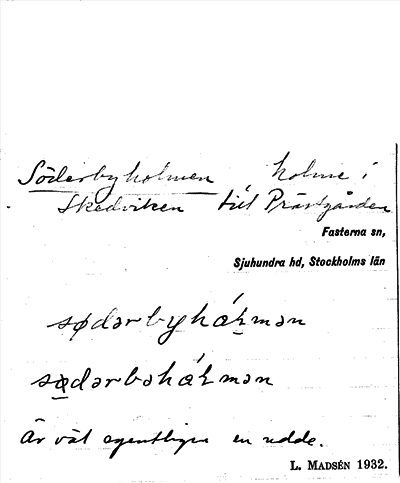 Söderbyholmen holme i
Skedviken till Prästgården
Fasterna sn,
Sjuhundra hd, Stockholms län
södərbyhálmən
sɷdərbəhálmən
Är väl egentligen en udde.
L. MADSÉN 1932.